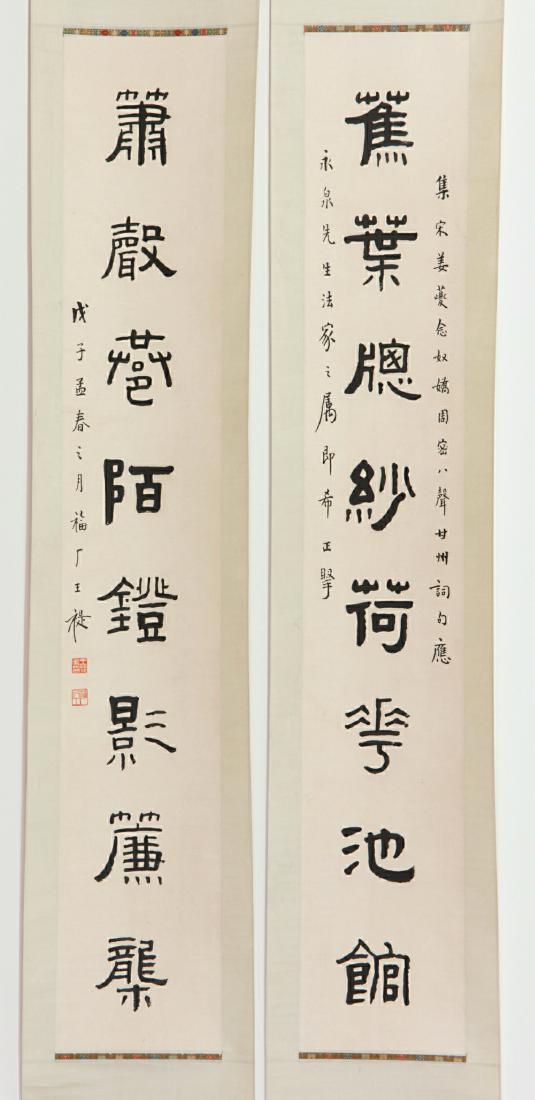 集宋姜夔念奴嬌周密八聲甘州詞句應
蕉葉牕紗荷花池館
永泉先生法家之屬即希正掔
簫聲巷陌鐙影簾櫳
戊子孟春之月福厂王禔